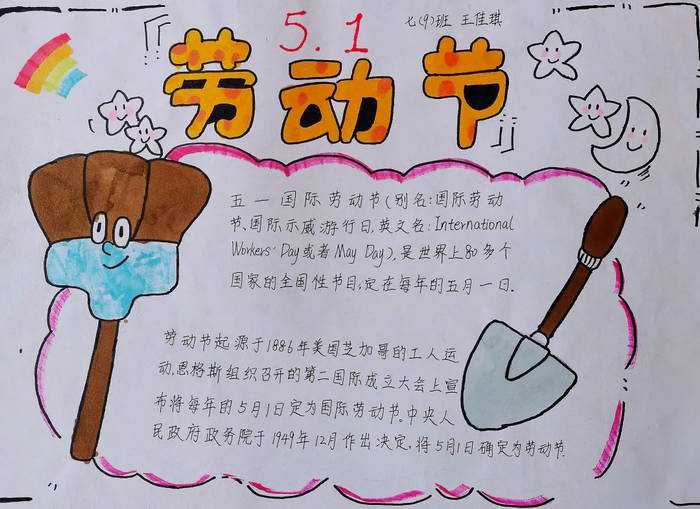 七(9)班 王佳琪
5.1
『劳动节』
五一国际劳动节(别名:国际劳动
节、国际示威游行日,英文名:International
Workers' Day或者May Day),是世界上80多个
国家的全国性节日,定在每年的五月一日.
劳动节起源于1886年美国芝加哥的工人运
动,恩格斯组织召开的第二国际成立大会上宣
布将每年的5月1日定为国际劳动节.中央人
民政府政务院于1949年12月作出决定,将5月1日确定为劳动节.